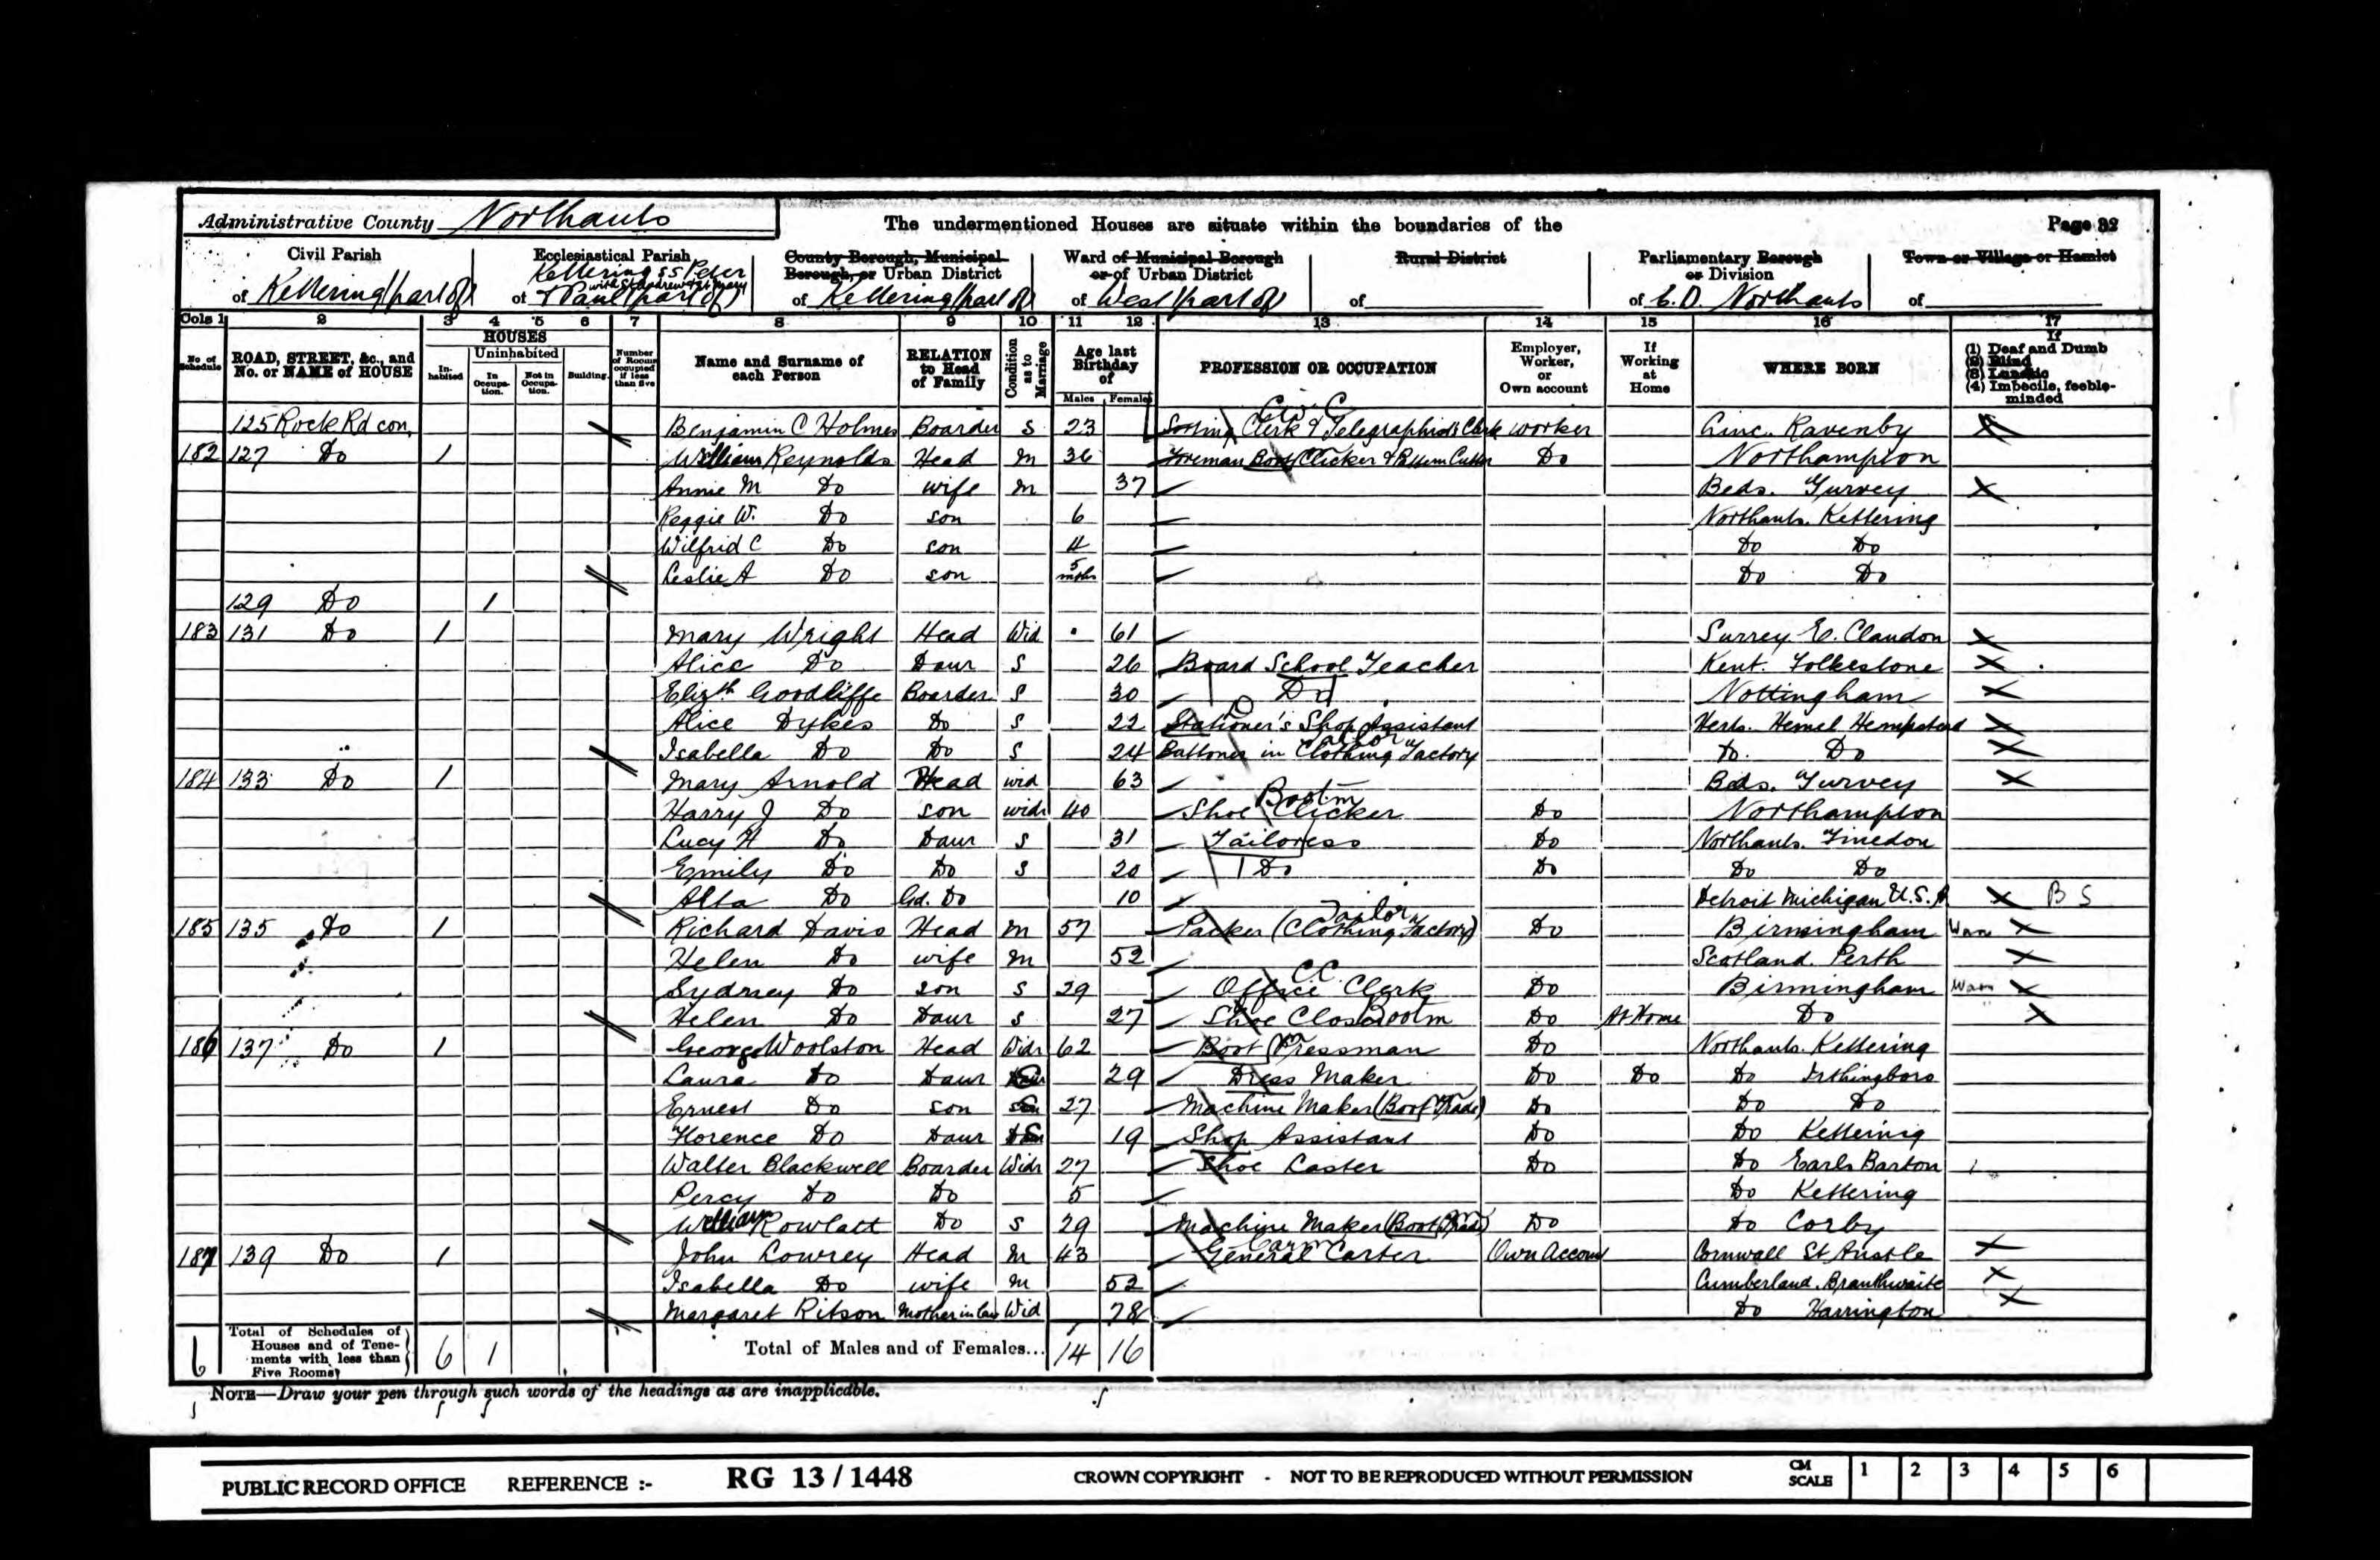 Administrative County Northants
The undermentioned Houses are situate within the boundaries of the
Page 32
Civil Parish
of Kettering (part of)
Ecclesiastical Parish
of Kettering SS Peter & Paul with St Andrew & St Mary (part of)
County Borough, Municipal Borough, or Urban District
of Kettering (part of)
Ward of Municipal Borough or of Urban District
of West (part of)
Rural District
of
Parliamentary Borough or Division
of E.D. Northants
Town or Village or Hamlet
of
Cols 1 2 3 4 5 6 7 8 9 10 11 12 13 14 15 16 17
No of Schedule
ROAD, STREET, &c., and No. or NAME of HOUSE
HOUSES
Inhabited
Uninhabited
In Occupation.
Not in Occupation.
Building.
Number of Rooms occupied if less than five
Name and Surname of each Person
RELATION to Head of Family
Condition as to Marriage
Age last Birthday of
Males Females
PROFESSION OR OCCUPATION
Employer, Worker, or Own account
If Working at Home
WHERE BORN
If
(1) Deaf and Dumb
(2) Blind
(3) Lunatic
(4) Imbecile, feeble-minded
125 Rock Rd con. Benjamin C Holmes Boarder S 23 Sorting Clerk & Telegraphist Clerk Civ. C worker Ravenby
182 127 Do 1 William Reynolds Head M 36 Foreman Boot Clicker & Pattern Cutter Do Northampton
Annie M Do wife M 37 Beds. Turvey
Reggie W. Do son 6 Northants. Kettering
Wilfrid C Do son 4 Do Do
Leslie A Do son 5 mths Do Do
129 Do 1
183 131 Do 1 Mary Wright Head Wid 61 Surrey E. Clandon
Alice Do Daur S 26 Board School Teacher Kent. Folkestone
Elizth Goodliffe Boarder S 30 Do Nottingham
Alice Dykes Do S 22 Stationer's Shop Assistant Herts. Hemel Hempstead
Isabella Do Do S 24 in Clothing Factory Tailor Do Do
184 133 Do 1 Mary Arnold Head wid 63 Beds. Turvey
Harry J Do son widr 40 Shoe Clicker Bootm Do Northampton
Lucy H Do Daur S 31 Tailoress Do Northants. Finedon
Emily Do Do S 20 Do Do Do Do
Alta Do Gd. Do 10 Detroit Michigan U.S.A B S
185 135 Do 1 Richard Davis Head M 57 Packer (Clothing Factory) Tailor Do Birmingham War
Helen Do wife M 52 Scotland. Perth
Sydney Do son S 29 Office Clerk CC Do Birmingham War
Helen Do Daur S 27 Shoe Closer Bootm Do At Home Do
186 137 Do 1 George Woolston Head Widr 62 Boot Pressman Do Northants. Kettering
Laura Do Daur S 29 Dress Maker Do Do Do Irthingboro
Ernest Do son S 27 Machine Maker (Boot Trade) Do Do Do
Florence Do Daur S 19 Shop Assistant Do Do Kettering
Walter Blackwell Boarder Widr 27 Shoe Laster Do Do Earls Barton
Percy Do Do 5 Do Kettering
William Rowlatt Do S 29 Machine Maker (Boot Trade) Do Do Corby
187 139 Do 1 John Lowrey Head M 43 General Carter Carm Own Account Cornwall St Austle
Isabella Do wife M 52 Cumberland. Branthwaite
Margaret Ritson Mother in law Wid 78 Do Harrington
6 Total of Schedules of Houses and of Tenements with less than Five Rooms 6 1 Total of Males and of Females... 14 16
NOTE—Draw your pen through such words of the headings as are inapplicable.
PUBLIC RECORD OFFICE REFERENCE :- RG 13 / 1448 CROWN COPYRIGHT - NOT TO BE REPRODUCED WITHOUT PERMISSION CM SCALE 1 2 3 4 5 6